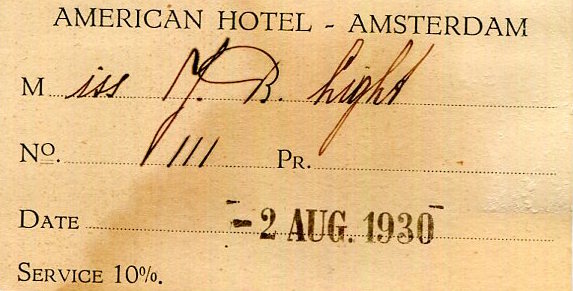 AMERICAN HOTEL - AMSTERDAM
Miss Y. B. Light
No. 111 PR.
DATE - 2 AUG. 1930
SERVICE 10%.